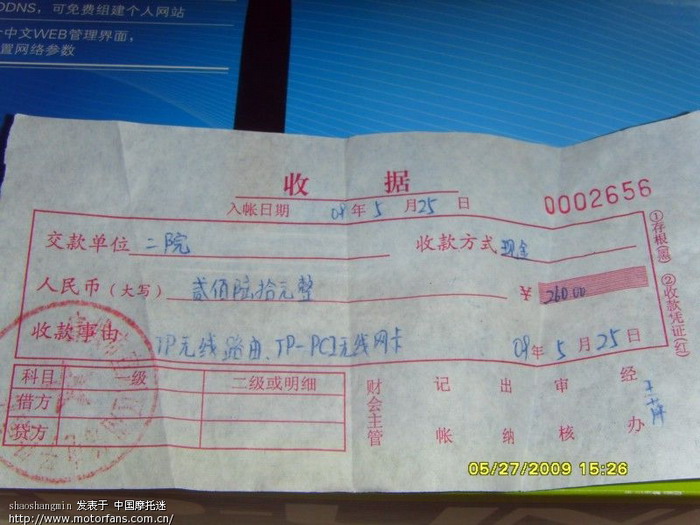 DDNS，可免费组建个人网站
中文WEB管理界面，
置网络参数
收 据
入帐日期 09年5月25日
0002656
交款单位 二院 收款方式 现金
人民币（大写） 贰佰陆拾元整 ¥ 260.00
收款事由 TP无线路由、TP-PCI无线网卡 09年5月25日
科目 一级 二级或明细
借方
贷方
财会主管
记帐
出纳
审核
经办
①存根（黑） ②收款凭证（红）
05/27/2009 15:26
shaoshangmin 发表于 中国摩托迷
http://www.motorfans.com.cn/